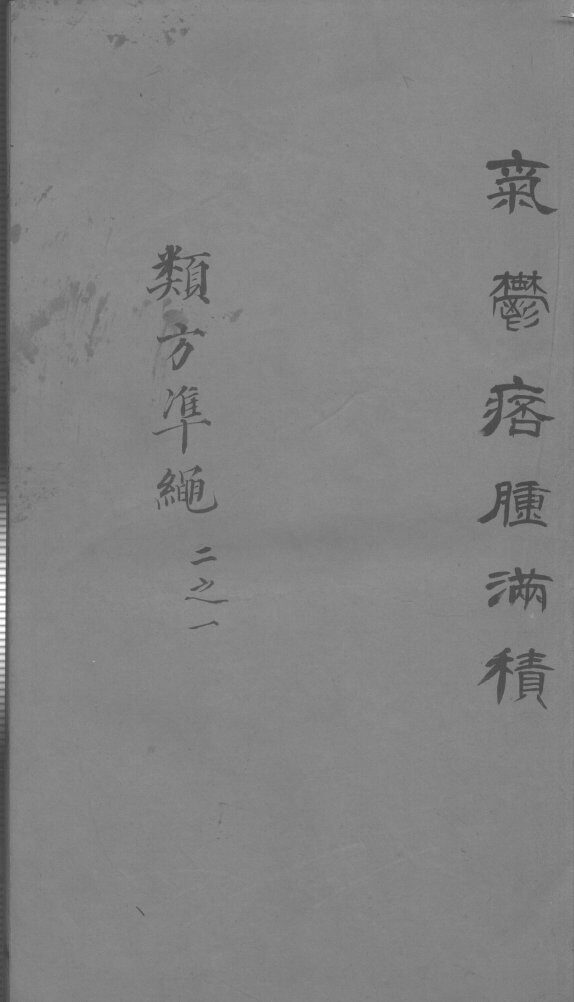 氣鬱痞腫滿積
類方準繩二之一